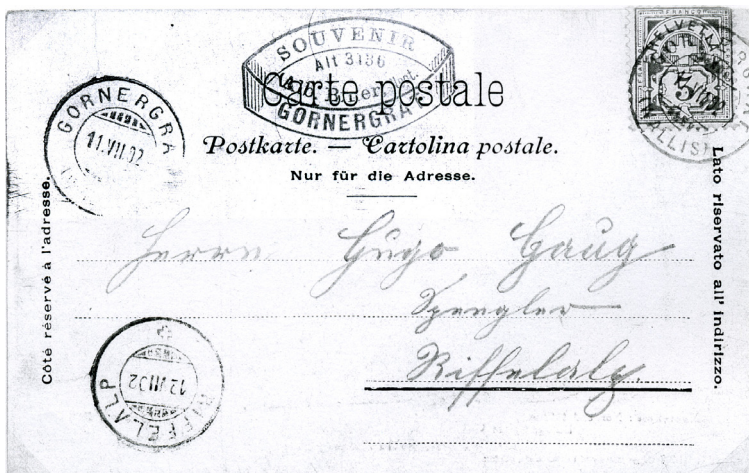 SOUVENIR
Alt 3136
GORNERGRA
Carte postale
Postkarte. — Cartolina postale.
Nur für die Adresse.
GORNERGRA
11.VII.02
HELVETIA
FRANCO
5
Côté réservé à l'adresse.
Lato riservato all' indirizzo.
Herrn Hugo Gaug
Spengler
Riffelalp.
RIFFELALP
12.VII.02